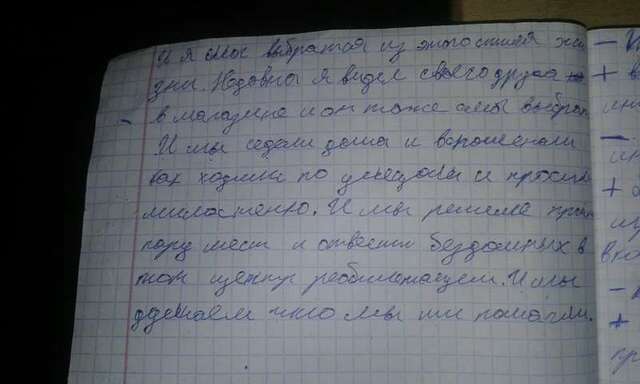 И я смог выбратся из этого стиля жи
зни. Недовна я видел своего друга
в магазине и он тоже смог выбрат
И мы седели дома и вспоменали
как ходили по улецам и просили
милостеню. И мы решили
пару мест и отвести бездомных в
том центр реобилетацеи. И мы
думаем что мы им помагли.
- 
+ в
ин
-
ин
+
вко
-
+
пр